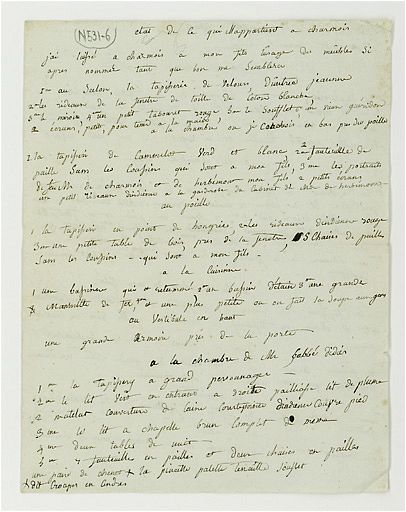 N531-6
etat de ce qui M'appartient a charmois
j'ai laissé a charmois a mon fils l'usage des meubles si
apres nommés tant que bon me semblera
1er au Salon, la tapisserie de Velours, d'indienne
2 les rideaux de la fenetre de toille de coton blanche
3 le miroir, 4 un petit tabouret rouge le soufflet,
2 ecrans, petits, pour tenir a la main
a la chambre ou je Couchois en bas pres du poille
1 la tapisserie de Camelot Verd et blanc 2 fauteuille de
paille Sans les Coussins qui Sont a mon fils, 3 les portraits
de feu Mr de charmois et de herbemont mon fils 2 petits ecrans
un petit rideau d'indienne a la garderobe du Cabinet de Mde de herbemont
au poille
1 la tapisserie en point de hongrie, 2 les rideaux d'indienne rouge
3 une petite table de bois pres de la fenetre, 5 Chaises de paille
Sans les Coussins qui sont a mon fils
a la Cuisine
1 une bassinoire 2 un bassin d'étain 3 une grande
Marmitte de fer, et une plus petite ou on fait la soupe aux gens
au Vestibule en haut
une grande armoire pres de la porte
a la chambre de Mr l'abbé
1 la tapisserie a grand personnages
2 le lit Vert en entrant a droite paillasse lit de plume
2 matelat couverture de laine courtepointe d'indienne Couvre pied
3 le lit a chapelle brun complet de meme
4 deux tables de nuit
5 fauteuille en pailles et deux chaises en pailles
une paire de chenet la pincette palette tenaille Soufflet